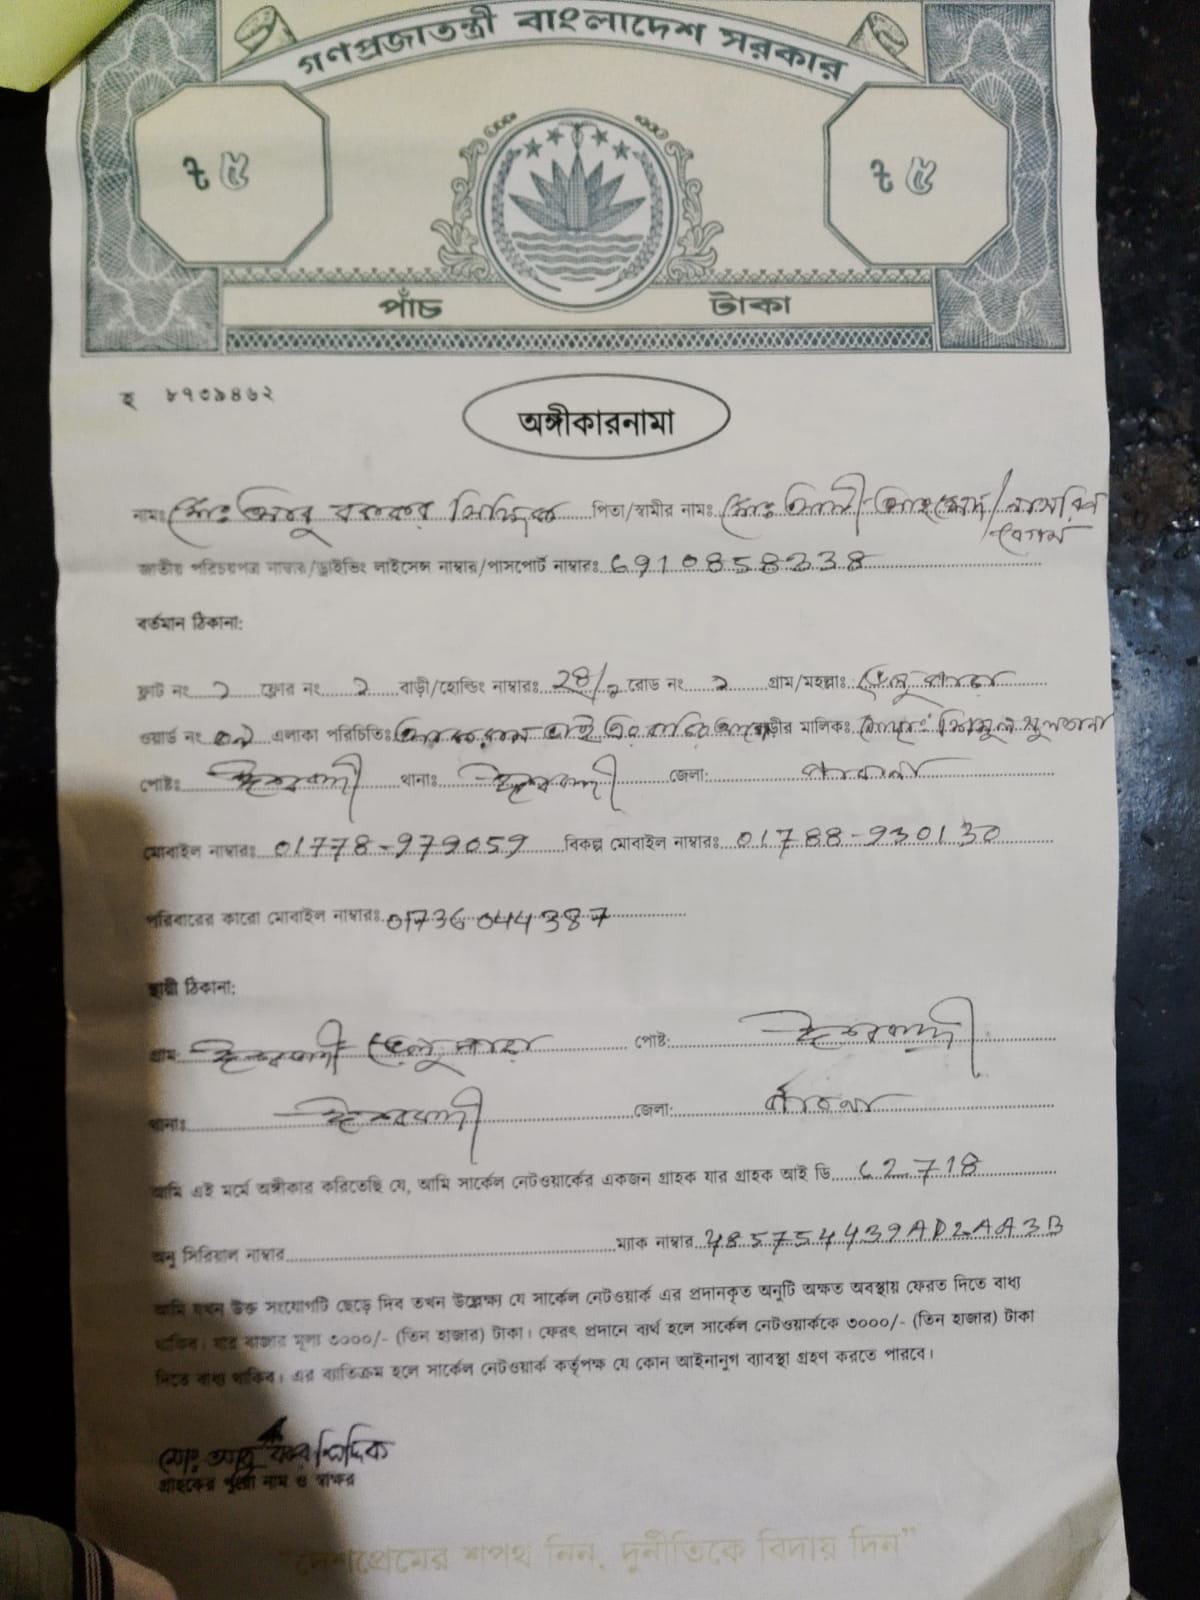 গণপ্রজাতন্ত্রী বাংলাদেশ সরকার
৳ ৫ ৳ ৫
পাঁচ টাকা
হ ৮৭৩৯৪৬২
অঙ্গীকারনামা
নামঃ মোঃ আবু বককর সিদ্দিক পিতা/স্বামীর নামঃ মোঃ আলী আহম্মেদ/নাসরিন
বেগম
জাতীয় পরিচয়পত্র নাম্বার/ড্রাইভিং লাইসেন্স নাম্বার/পাসপোর্ট নাম্বারঃ 6910858238
বর্তমান ঠিকানা:
ফ্লাট নং ১ ফ্লোর নং ১ বাড়ী/হোল্ডিং নাম্বারঃ 28/ রোড নং ১ গ্রাম/মহল্লাঃ ভেলু পাড়া
ওয়ার্ড নং এলাকা পরিচিতিঃ ভাই এর বাড়ির মালিকঃ সুলতানা
পোষ্টঃ ঈশ্বরদী থানাঃ ঈশ্বরদী জেলা: পাবনা
মোবাইল নাম্বারঃ 01778-979059 বিকল্প মোবাইল নাম্বারঃ 01788-930130
পরিবারের কারো মোবাইল নাম্বারঃ 01736044387
স্থায়ী ঠিকানা:
গ্রাম: ঈশ্বরদী ভেলু পাড়া পোষ্ট: ঈশ্বরদী
থানাঃ ঈশ্বরদী জেলা: পাবনা
আমি এই মর্মে অঙ্গীকার করিতেছি যে, আমি সার্কেল নেটওয়ার্কের একজন গ্রাহক যার গ্রাহক আই ডি 62718
অনু সিরিয়াল নাম্বার ম্যাক নাম্বার 485754439AD2AA3B
আমি যখন উক্ত সংযোগটি ছেড়ে দিব তখন উল্লেক্ষ্য যে সার্কেল নেটওয়ার্ক এর প্রদানকৃত অনুটি অক্ষত অবস্থায় ফেরত দিতে বাধ্য
থাকিব। যার বাজার মূল্য ৩০০০/- (তিন হাজার) টাকা। ফেরৎ প্রদানে ব্যর্থ হলে সার্কেল নেটওয়ার্ককে ৩০০০/- (তিন হাজার) টাকা
দিতে বাধ্য থাকিব। এর ব্যতিক্রম হলে সার্কেল নেটওয়ার্ক কর্তৃপক্ষ যে কোন আইনানুগ ব্যাবস্থা গ্রহণ করতে পারবে।
মোঃ আবু বককর সিদ্দিক
গ্রাহকের পুরো নাম ও স্বাক্ষর
"দেশপ্রেমের শপথ নিন, দুর্নীতিকে বিদায় দিন"